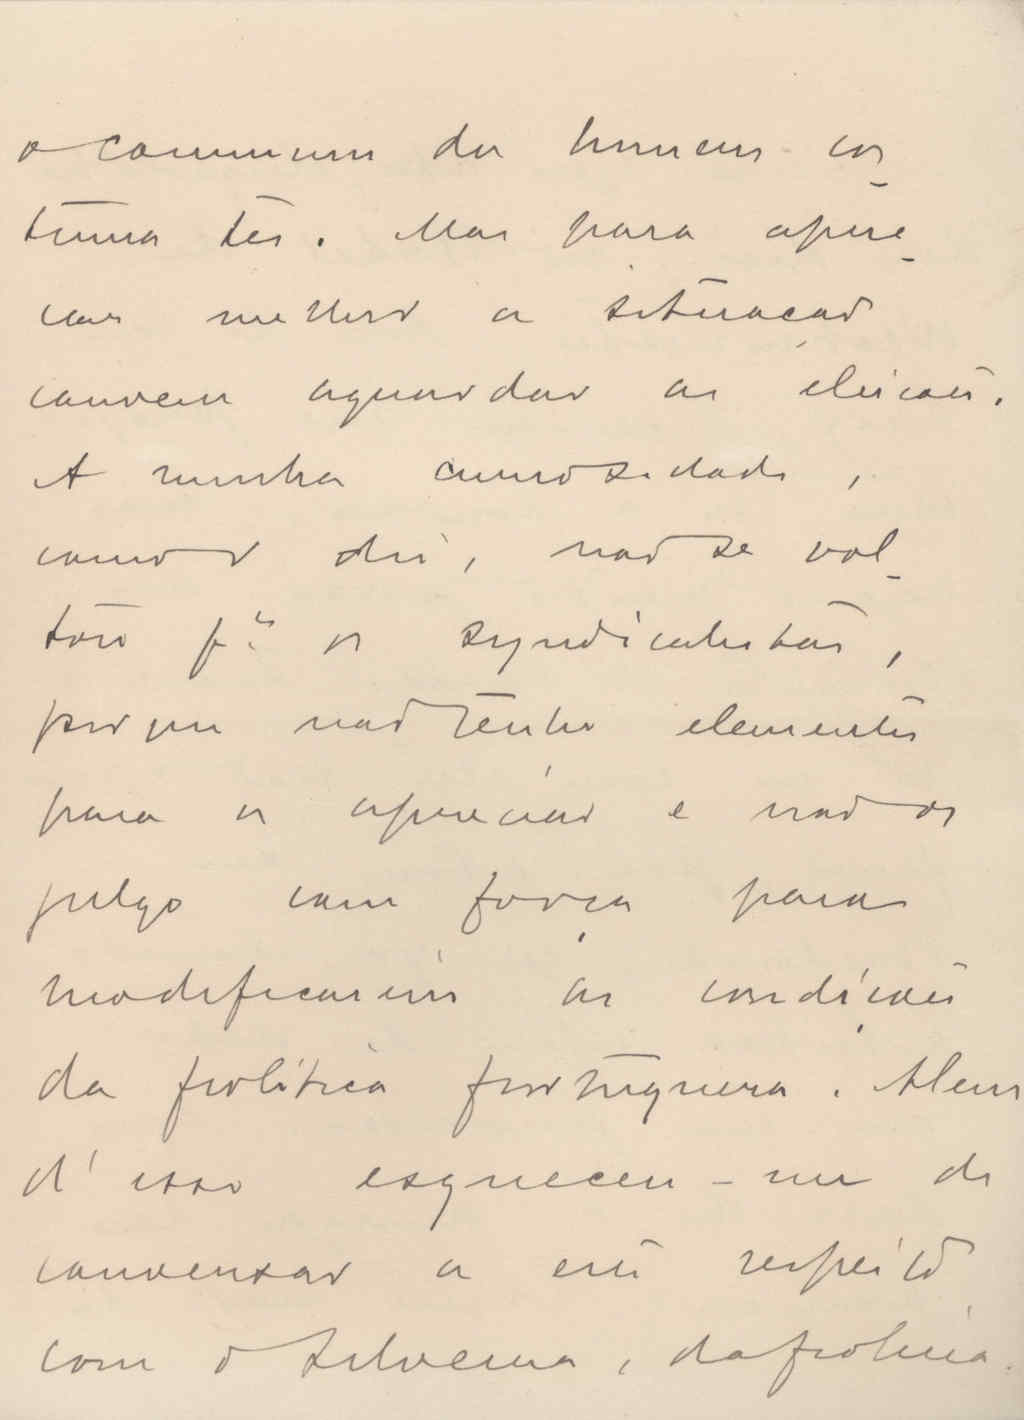 o commum dos homens cos_
tuma ter. Mas para apre_
ciar melhor a situação
convem aguardar as eleições.
A minha curiosidade,
como vê, não se vol_
tou p.ª os syndicalistas,
porque não tenho elementos
para os apreciar e não os
julgo com força para
modificarem as condições
da politica portugueza. Alem
d'isso esqueceu-me de
conversar a esse respeito
com o Silveira, da policia.